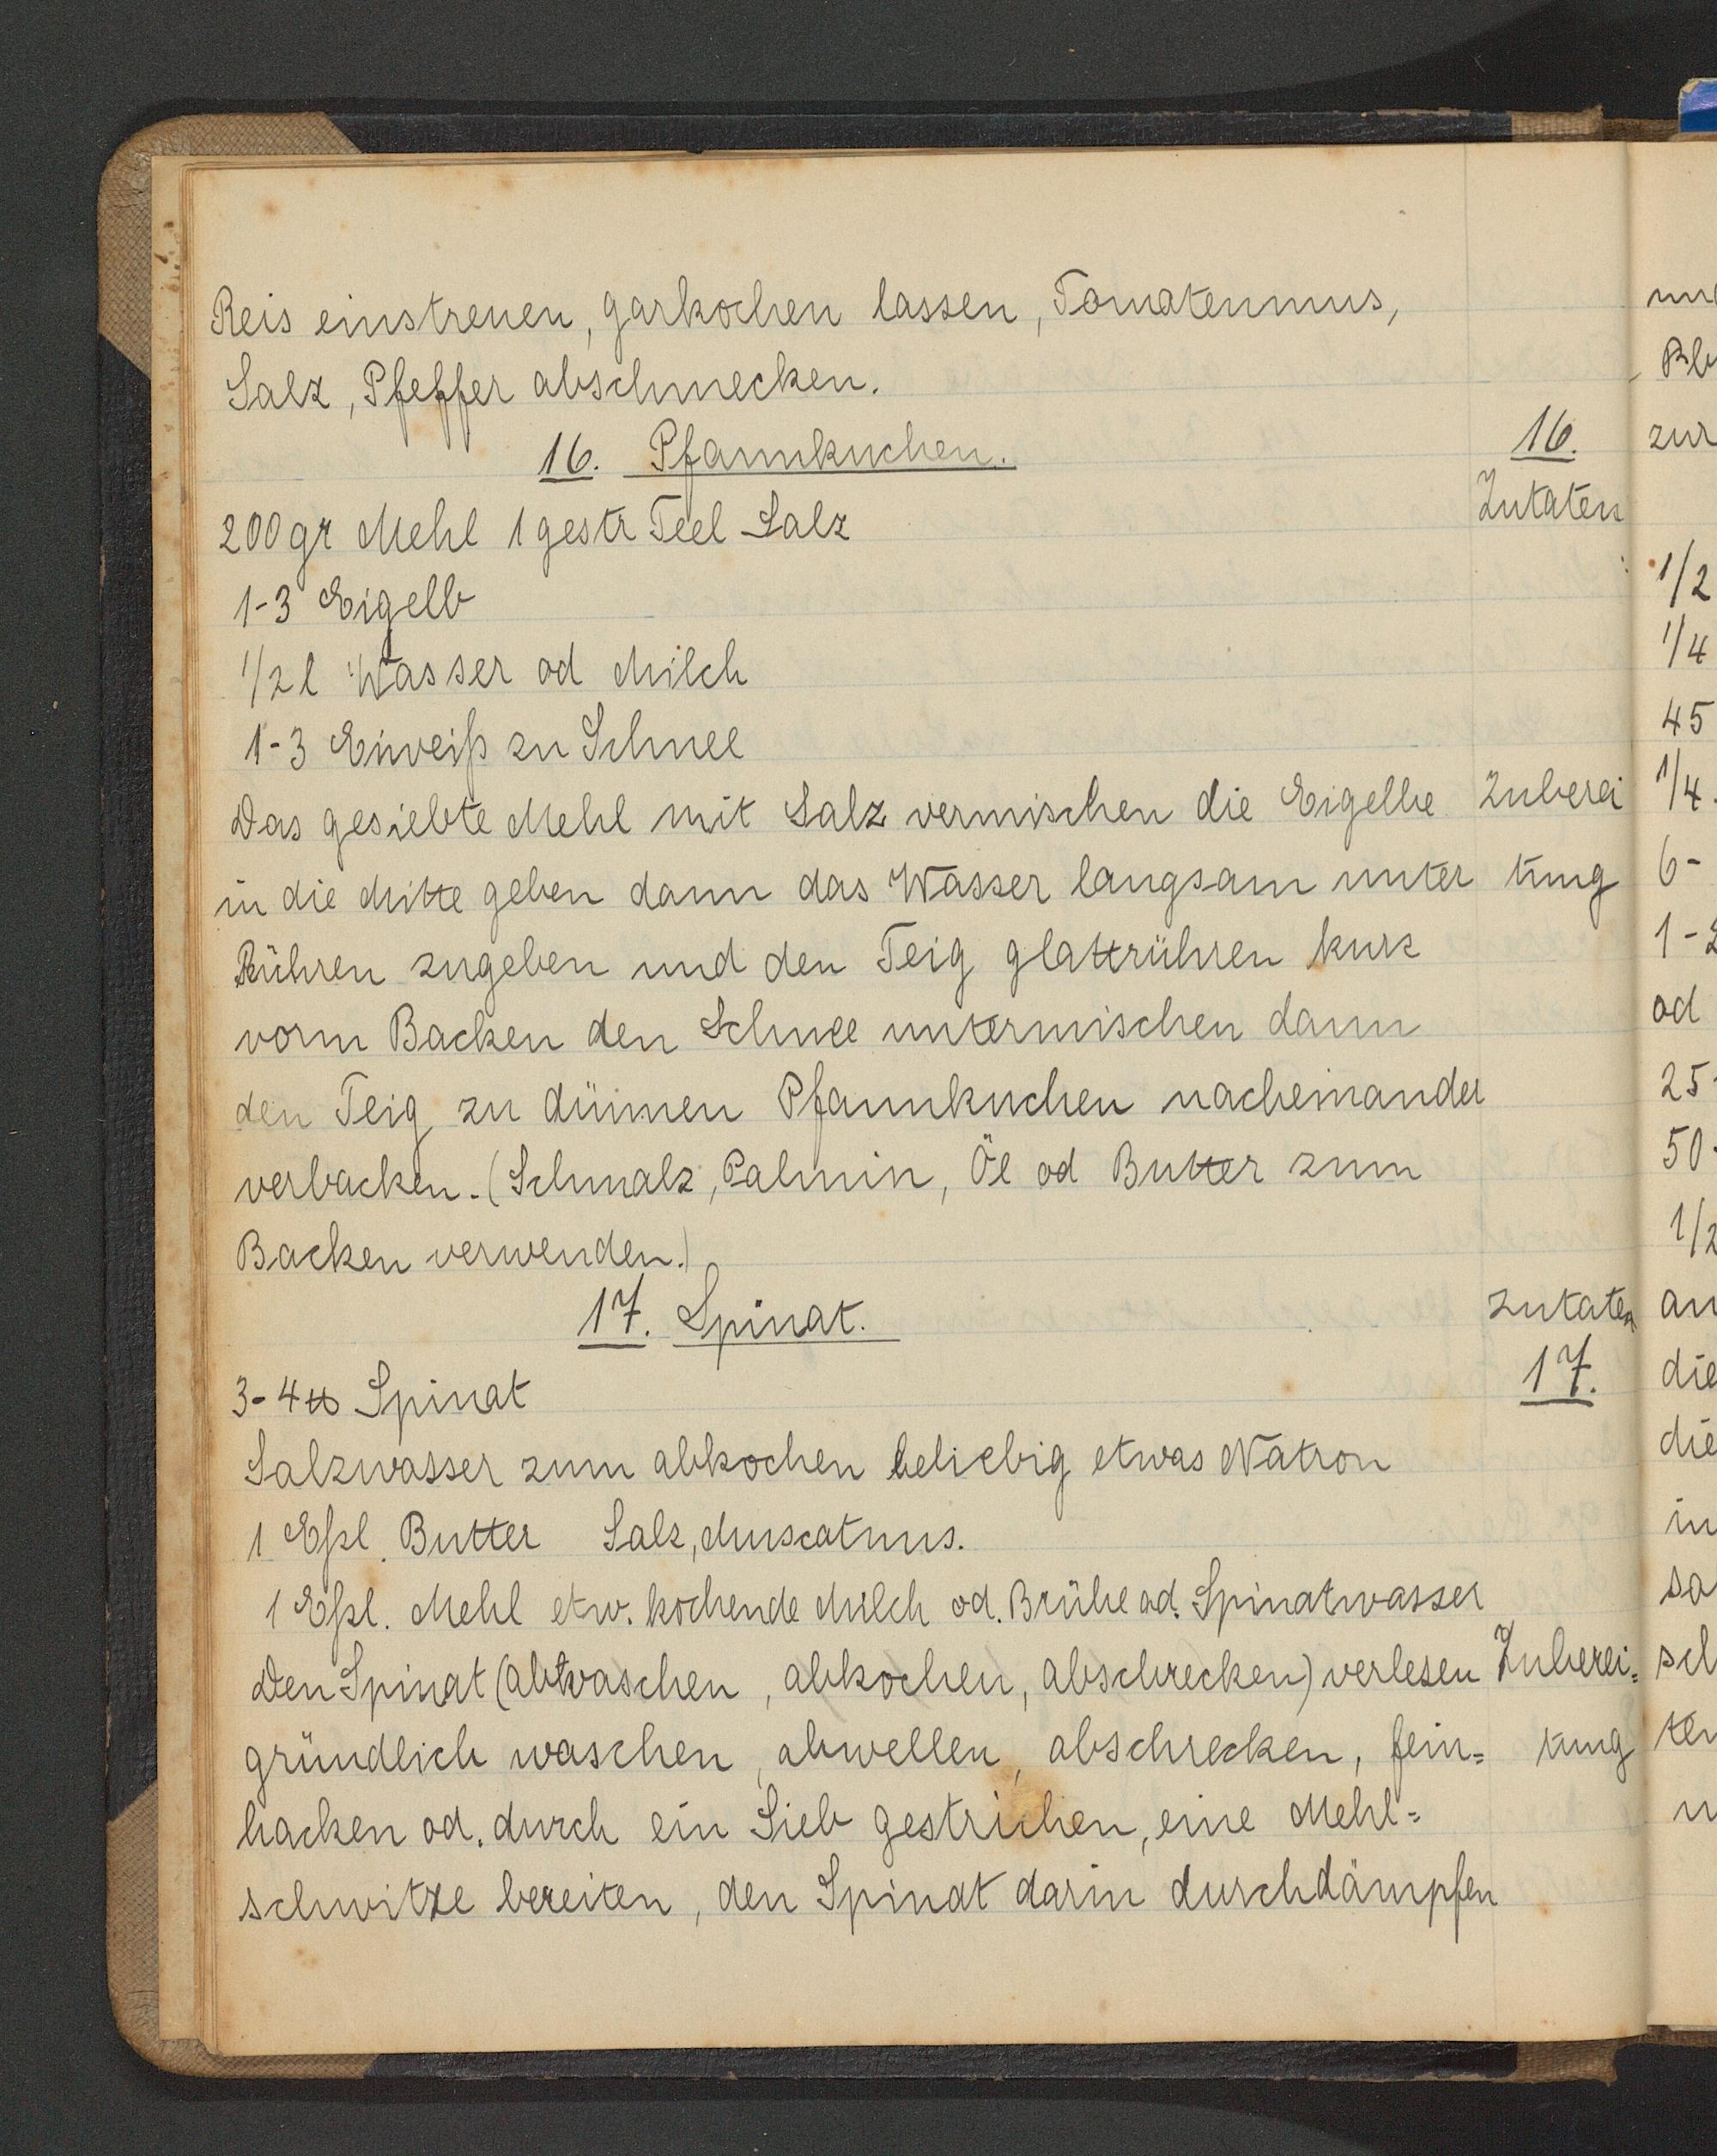 Reis einstreuen, garkochen lassen, Tomatenmus,
Salz, Pfeffer abschmecken.
16. Pfannkuchen.
16.
Zutaten
200 gr Mehl 1 gestr Teel Salz
1-3 Eigelb
1/2 l Wasser od Milch
1-3 Eiweiß zu Schnee
Das gesiebte Mehl mit Salz vermischen die Eigelbe
Zuberei
in die Mitte geben dann das Wasser langsam unter
tung
Rühren zugeben und den Teig glattrühren kurz
vorm Backen den Schnee untermischen dann
den Teig zu dünnen Pfannkuchen nacheinander
verbacken. (Schmalz, Palmin, Öl od Butter zum
Backen verwenden.)
17. Spinat.
Zutaten
17.
3-4 ℔ Spinat
Salzwasser zum abkochen beliebig etwas Natron
1 Eßl. Butter Salz, Muscatnus.
1 Eßl. Mehl etw. kochende Milch od. Brühe od. Spinatwasser
Den Spinat (abwaschen, abkochen, abschrecken) verlesen
Zuberei=
gründlich waschen, abwellen, abschrecken, fein=
tung
hacken od. durch ein Sieb gestrichen, eine Mehl=
schwitze bereiten, den Spinat darin durchdämpfen
zur
1/2
1/4
45
1/4
6-
od
25
50
1/2
die
die
in